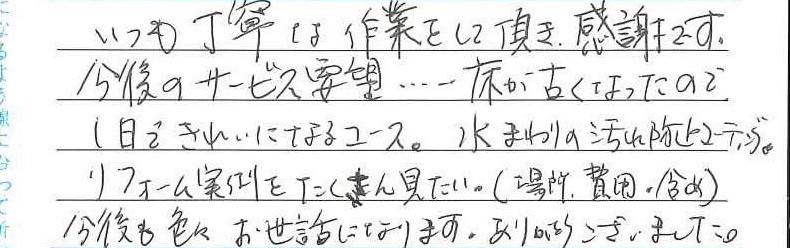 いつも丁寧な作業をして頂き、感謝です。
今後のサービス要望……床が古くなったので
1日できれいになるコース。水まわりの汚れ防止コーティング。
リフォーム実例をたくさん見たい。(場所、費用、含め)
今後も色々お世話になります。ありがとうございました。